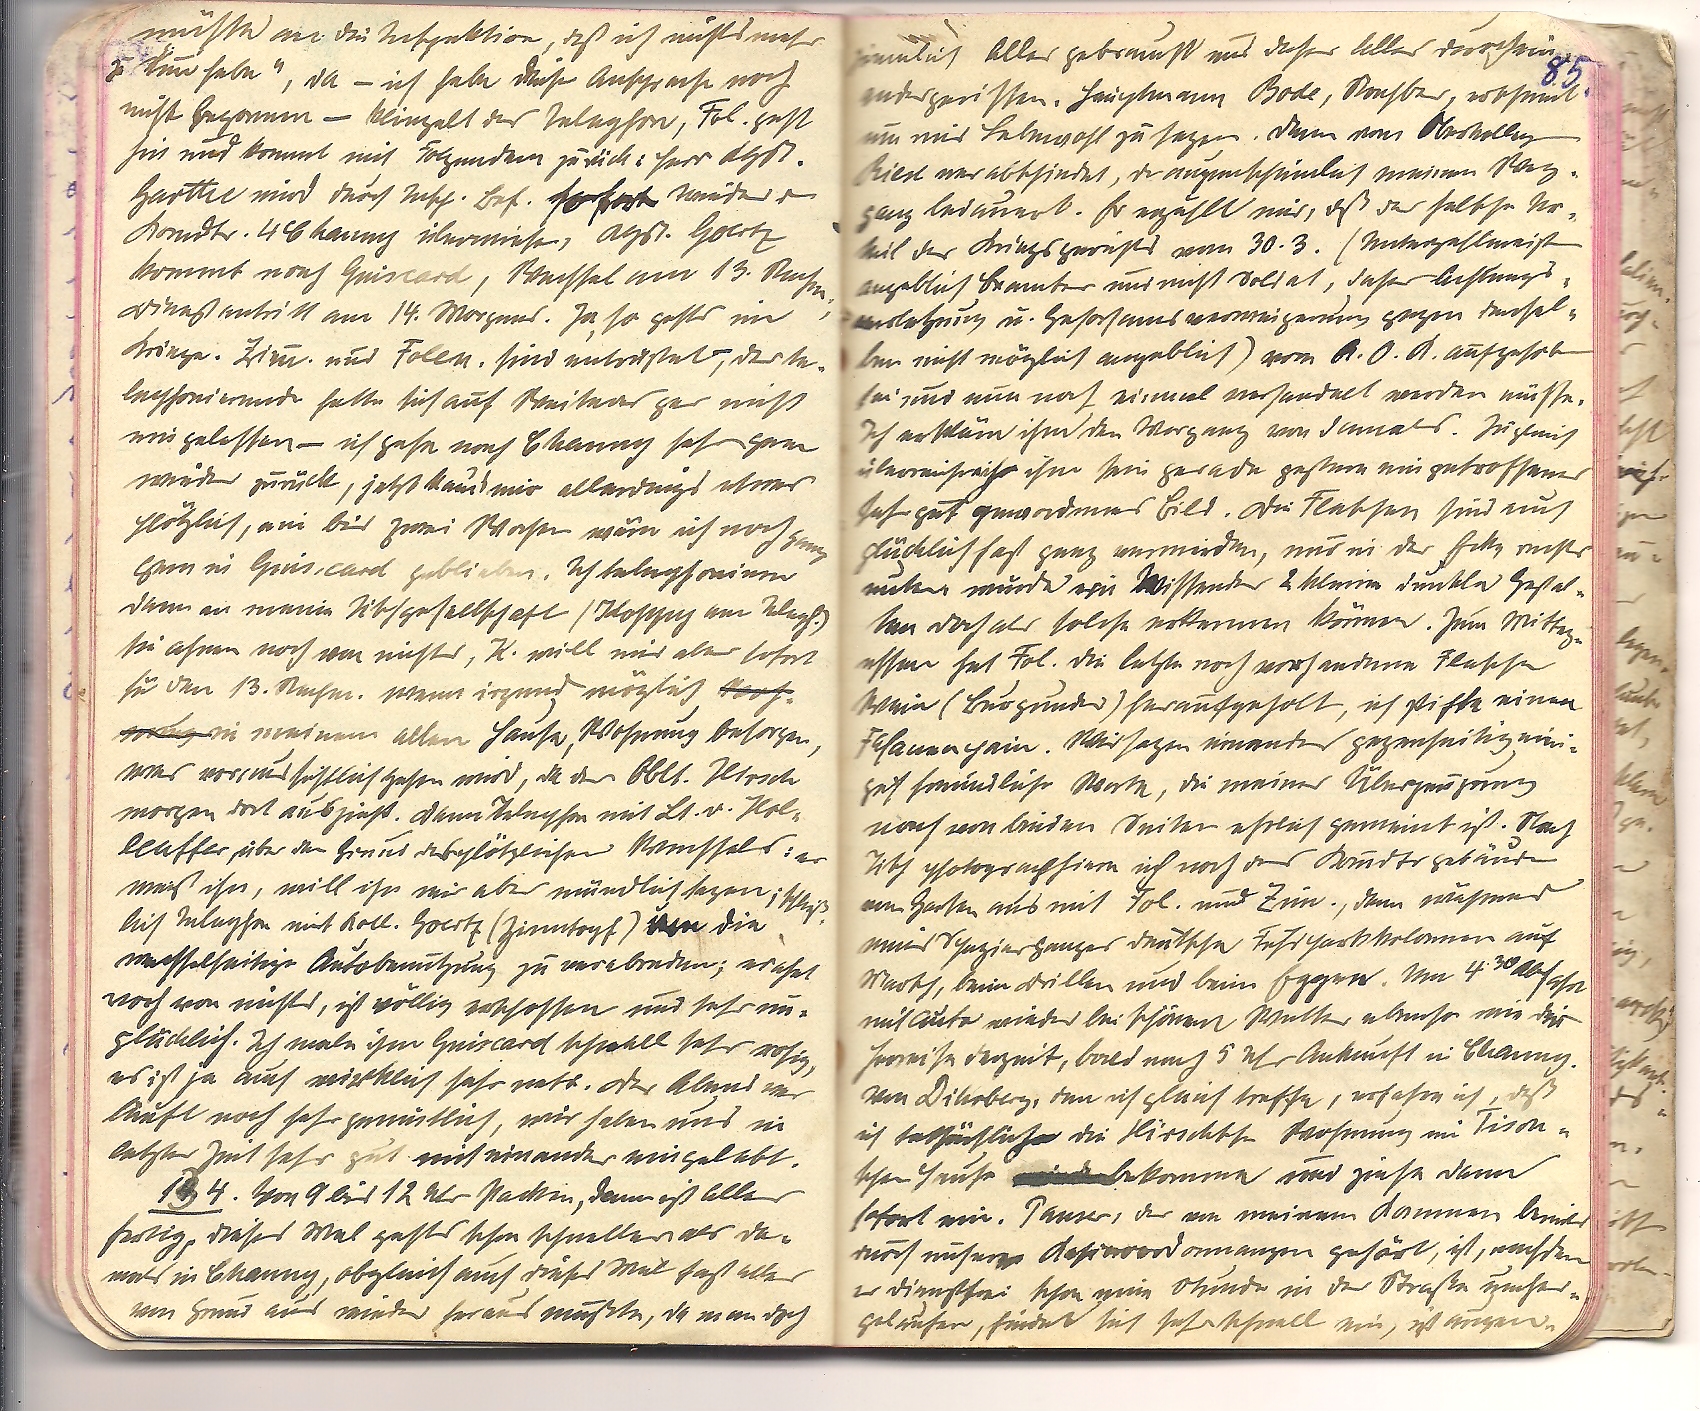 müßte an die Inspektion, daß ich nichts mehr
zu tun habe", da — ich habe diese Ansprache noch
nicht begonnen — klingelt das Telephon, Fol. geht
hin und kommt mit Folgendem zurück: Herr Kgst.
wird durch Insp. Bef. sofort wieder
Komdtr. 4 Chauny überwiesen, Kgst. Goertz
kommt nach Guiscard, Wechsel am 13. Nachm.,
Dienstantritt am 14. Morgens. Ja, so gehts im
Kriege. Zim. und Folln. sind entrüstet, der te-
lephonierende hatte sich auf Weiteres gar nicht
eingelassen — ich gehe nach Chauny sehr gern
wieder zurück, jetzt kams mir allerdings etwas
plötzlich, ein bis zwei Wochen wäre ich noch ganz
gern in Guiscard geblieben. Ich telephoniere
dann an meine Tischgesellschaft (am Teleph.)
sie ahnen noch von nichts, K. will mir aber sofort
für den 13. Nachm. wenn irgend möglich
in meinem alten Hause, Wohnung besorgen,
was voraussichtlich gehen wird, da der Oblt. Hirsch
morgen dort auszieht. Dann Telephon mit Lt. v. Hol-
leuffer über den Grund des plötzlichen Wechsels: er
weiß ihn, will ihn mir aber mündlich sagen; schließ-
lich Telephon mit Koll. Goertz (Zinntopf) um die
wechselseitige Autobenutzung zu verabreden; er ahnt
noch von nichts, ist völlig erschossen und sehr un-
glücklich. Ich male ihm Guiscard schnell sehr rosig,
es ist ja auch wirklich sehr nett. Der Abend ver-
läuft noch sehr gemütlich, wir haben uns in
letzter Zeit sehr gut miteinander eingelebt.
13 4. Von 9 bis 12 Uhr Packen, dann ist Alles
fertig, dieses Mal gehts schon schneller als da-
mals in Chauny, obgleich auch dieses Mal fast alles
von Grund aus wieder heraus mußte, da man doch
85.
ziemlich Alles gebraucht und daher Alles durchein-
andergerissen. Hauptmann Bode, Nachbar, erscheint
um mir Lebewohl zu sagen. Dann von
Ried verabschiedet, der augenscheinlich meinen Weg-
gang bedauert. Er erzählt mir, daß das selbe Ur-
teil des Kriegsgerichts vom 30.3. (Unterzahlmeister
angeblich Beamter und nicht Soldat, daher Achtungs-
verletzung u. Gehorsamsverweigerung gegen densel-
ben nicht möglich angeblich) vom A.O.K. aufgehoben
sei und nun noch einmal verhandelt werden müsse.
Ich erkläre ihm den Vorgang von damals. Zugleich
überreiche ich ihm sein gerade gestern eingetroffenes
sehr gut gewordenes Bild. Die sind auch
glücklich fast ganz vermieden, nur in der Ecke rechts
unten würde ein Wissender 2 kleine dunkle Gestal-
ten doch als solche erkennen können. Zum Mittag-
essen hat Fol. die letzte noch vorhandene Flasche
Wein (Burgunder) heraufgeholt, ich stifte einen
Champain. Wir sagen einander gegenseitig eini-
ge freundliche Worte, die meiner Überzeugung
nach von beiden Seiten ehrlich gemeint ist. Nach
Tisch photographiere ich noch das Komdtrgebäude
vom Garten aus mit Fol. und Zim., dann während
eines Spazierganges deutsche Fuhrparkkolonnen auf
Marsch, beim Drillen und beim Eggen. Um 4 30 Abfahrt
mit Auto wieder bei schönem Wetter ebenso wie die
Herreise derzeit, bald nach 5 Uhr Ankunft in Chauny.
Von den ich gleich treffe, erfahre ich, daß
ich tatsächlich die Hirschsche Wohnung im
schen Hause bekomme und ziehe dann
sofort ein. der von meinem Kommen bereits
durch unsere gehört, ist, nachdem
er dienstfrei schon eine Stunde in der Straße umher-
gelaufen, findet sich sehr schnell ein, ist augen-